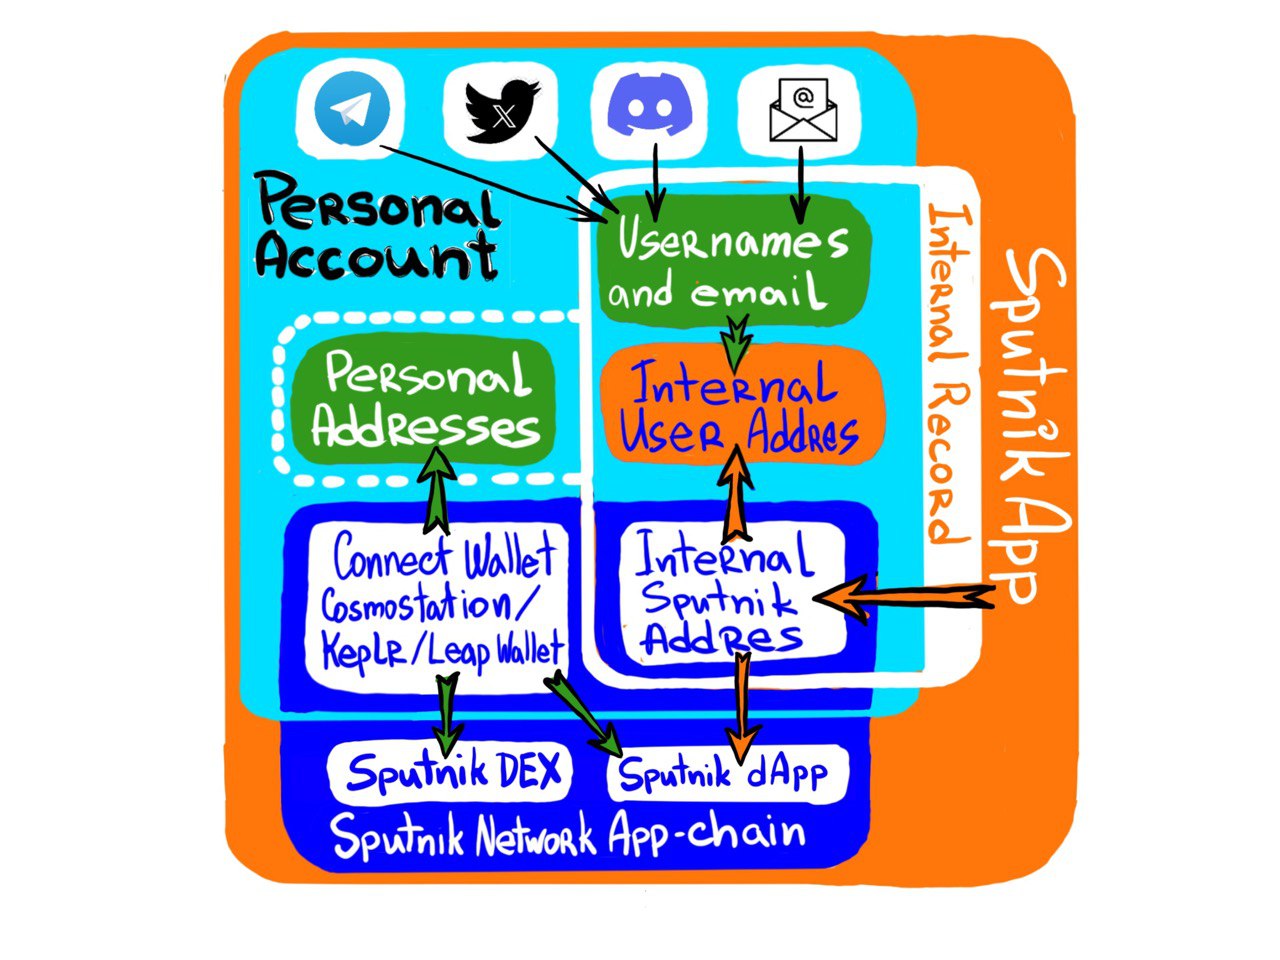 X
@
Personal
Account
Usernames
and email
Internal Record
Sputnik App
Personal
Addresses
Internal
User Addres
Connect Wallet
Cosmostation/
Keplr/Leap Wallet
Internal
Sputnik
Addres
Sputnik DEX
Sputnik dApp
Sputnik Network App-chain